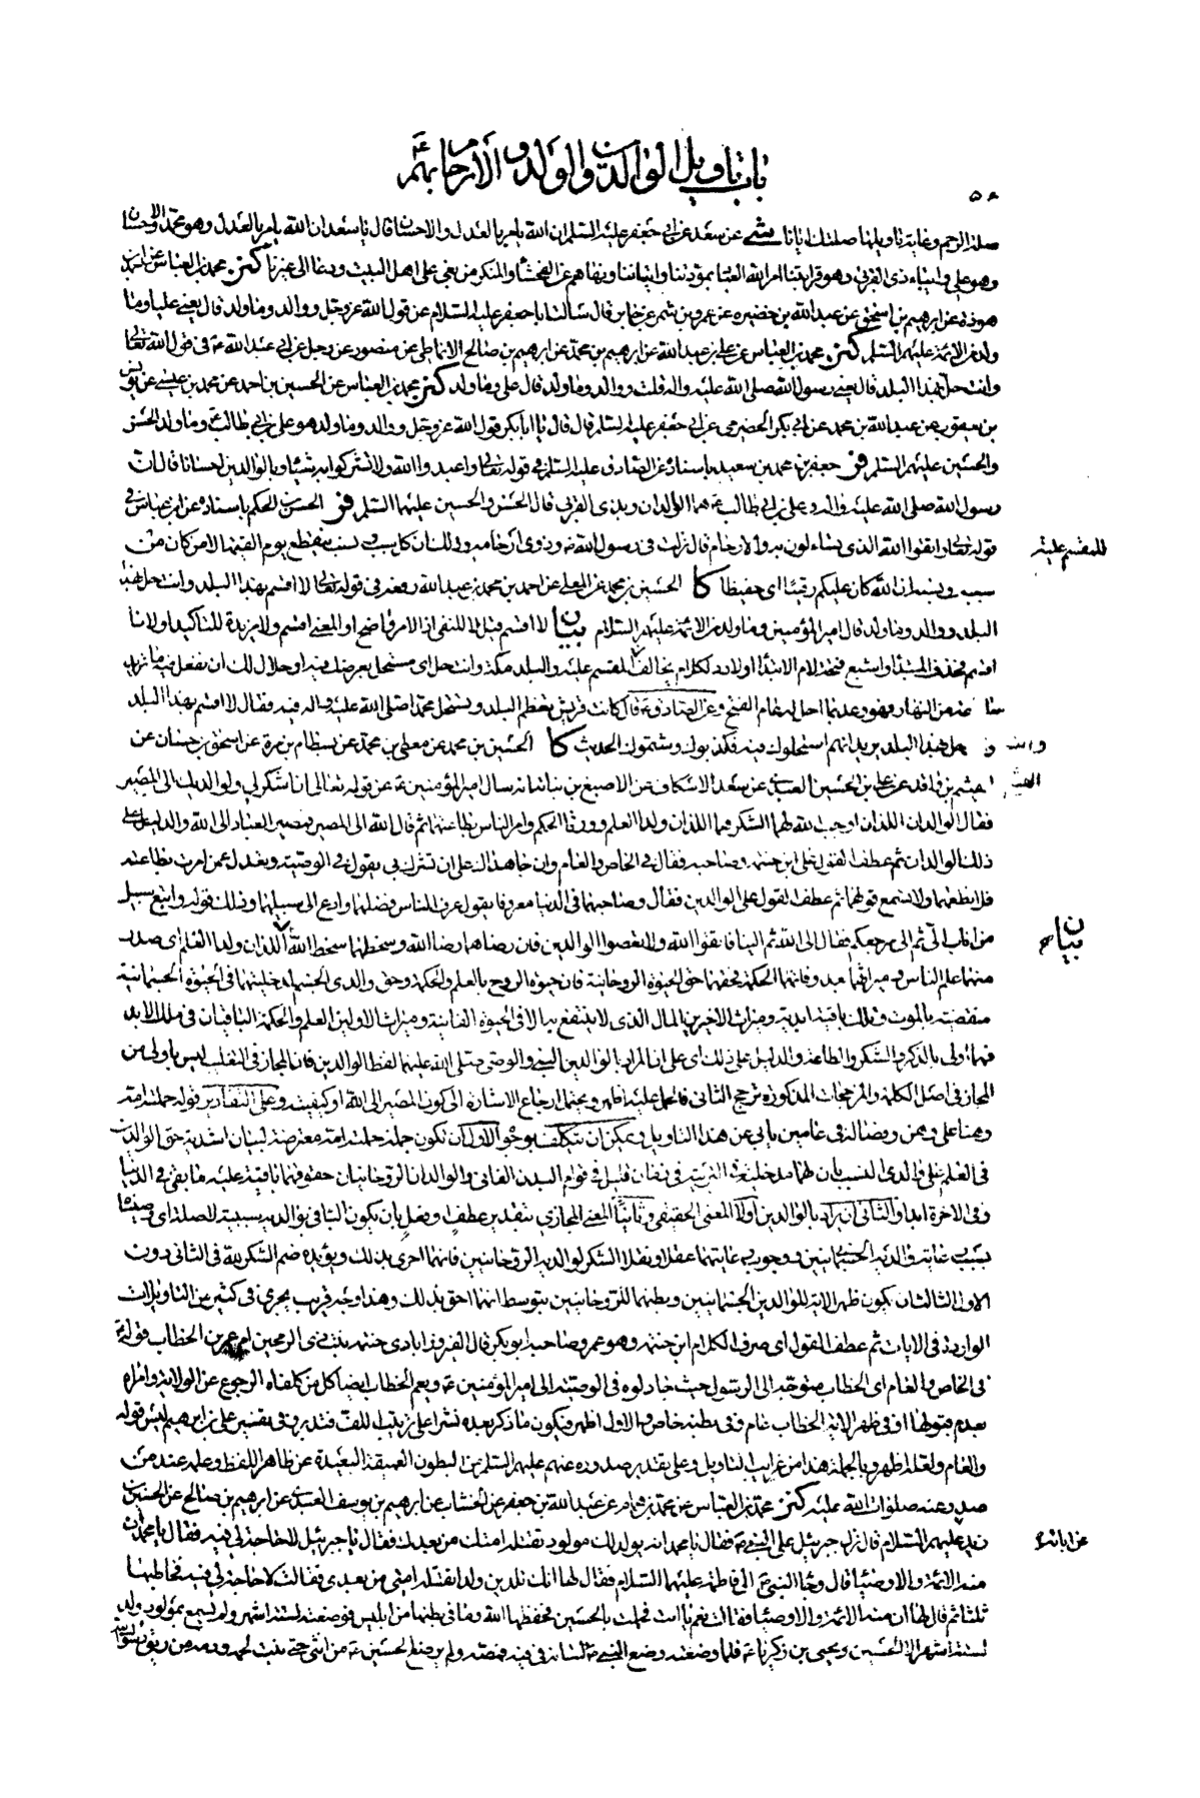 باب تاويل الوالدين والولد والارحام بهم ع
٥٨
صلة الرحم وغاية تاويلها صلتك ايانا شى عن سعد عن ابي جعفر عليه السلم ان الله يامر بالعدل والاحسان قال يا سعد ان الله يامر بالعدل وهو محمد والاحسان
وهو علي وايتاء ذى القربى وهو قرابتنا امر الله العباد بمودتنا وايتائنا ونهاهم عن الفحشاء والمنكر من بغى على اهل البيت ودعا الى غيرنا كنز محمد بن العباس عن احمد بن
هوذة عن ابرهيم بن اسحق عن عبد الله بن حضيره عن عمرو بن شمر عن جابر قال سالت ابا جعفر عليه السلام عن قول الله عز وجل ووالد وما ولد قال يعنى عليا وما
ولد من الائمة عليهم السلم كنز محمد بن العباس عن علي بن عبد الله عن ابرهيم بن محمد عن ابرهيم بن صالح الانماطى عن منصور عن رجل عن ابي عبد الله ع فى قول الله تعالى
وانت حل بهذا البلد قال يعنى رسول الله صلى الله عليه واله قلت ووالد وما ولد قال علي وما ولد كنز محمد بن العباس عن الحسين بن احمد عن محمد بن عيسى عن يونس
بن يعقوب عن عبد الله بن محمد عن ابي بكر الحضرمى عن ابي جعفر عليه السلم قال قال يا ابا بكر قول الله عز وجل ووالد وما ولد هو على بن ابي طالب ع وما ولد الحسن
والحسين عليهم السلم فر جعفر بن محمد بن سعيد باسناده عن الصادق عليه السلم فى قوله تعالى واعبدوا الله ولا تشركوا به شيئا وبالوالدين احسانا قال ان
رسول الله صلى الله عليه واله وعلي بن ابي طالب ع هما الوالدان وبذى القربى قال الحسن والحسين عليهما السلم فر الحسن بن الحكم باسناده عن ابن عباس فى
قوله تعالى واتقوا الله الذى تساءلون به والارحام قال نزلت فى رسول الله ص وذوى ارحامه وذلك ان كل سبب ونسب منقطع يوم القيمة الا من كان من
سببه ونسبه ان الله كان عليكم رقيبا اى حفيظا كا الحسين بن محمد عن المعلى عن احمد بن محمد بن عبد الله رفعه فى قوله تعالى لا اقسم بهذا البلد وانت حل بهذا
البلد ووالد وما ولد قال امير المؤمنين وما ولد من الائمة عليهم السلام بيان لا اقسم قيل لا للنفى اذ الامر واضح او المعنى اقسم ولا مزيدة للتاكيد او لانا
اقسم فحذف المبتدا واشبع فتحة لام الابتدا او لا رد لكلام يخالف المقسم عليه والبلد مكة وانت حل اى مستحل بعرضك فيه او حلال لك ان تفعل فيه ما تريد
ساعة من النهار فهو وعد بما احل له عام الفتح وعن الصادق ع قال كانت قريش تعظم البلد وتستحل محمدا صلى الله عليه واله فيه فقال لا اقسم بهذا البلد
وانت حل بهذا البلد يريد انهم استحلوك فيه فكذبوك وشتموك الحديث كا الحسين بن محمد عن معلى بن محمد عن بسطام بن مرة عن اسحق بن حسان عن
الهيثم بن واقد عن علي بن الحسين العبدى عن سعد الاسكاف عن الاصبغ بن نباتة انه سال امير المؤمنين ع عن قوله تعالى ان اشكر لي ولوالديك الى المصير
فقال الوالدان اللذان اوجب الله لهما الشكر هما اللذان ولدا العلم وورثا الحكم وامر الناس بطاعتهما ثم قال الله الى المصير فمصير العباد الى الله والدليل على
ذلك الوالدان ثم عطف القول على ابن حنتمة وصاحبه فقال فى الخاص والعام وان جاهداك على ان تشرك بى يقول فى الوصية وتعدل عمن امرت بطاعته
فلا تطعهما ولا تسمع قولهما ثم عطف القول على الوالدين فقال وصاحبهما فى الدنيا معروفا يقول عرف الناس فضلهما وادع الى سبيلهما وذلك قوله واتبع سبيل
من اناب الى ثم الى مرجعكم فقال الى الله ثم الينا فاتقوا الله ولا تعصوا الوالدين فان رضاهما رضا الله وسخطهما سخط الله اللذان ولدا العلم اى صدر
منهما علم الناس وميراثهما بعد وفاتهما الحكمة فحقهما حق الحيوة الروحانية فان حيوة الروح بالعلم والحكمة وحق والدى الجسم لمدخليتهما فى الحيوة الجسمانية
منقضية بالموت وتلك باقية ابدية وميراث الاخرين المال الذى لا ينتفع به الا فى الحيوة الفانية وميراث الاولين العلم والحكمة الباقيان فى ملك الابد
فهما اولى بالذكر والشكر والطاعة والدليل على ذلك اى على ان المراد بالوالدين النبى والوصى صلى الله عليهما لفظ الوالدين فان المجاز فى التغليب ليس باولى من
المجاز فى اصل الكلمة والمرجحات المذكورة ترجح الثانى فالحمل عليه اظهر ويحتمل ارجاع الاشارة الى كون المصير الى الله او كيفيته وعلى التقادير قوله حملته امه
وهنا على وهن وفصاله فى عامين يابى عن هذا التاويل ويمكن ان يتكلف بوجوه الاول ان تكون جملة حملته امه معترضة لبيان اشدية حق الوالدين
فى العلم على والدى النسب بان لهما مدخلية فى التربية فى زمان قليل فى قوام البدن الفانى والوالدان الروحانيان حقوقهما باقية عليه ما بقى فى الدنيا
وفى الاخرة ابدا والثانى ان يراد بالوالدين اولا المعنى الحقيقى وثانيا المعنى المجازى بتقدير عطف او فعل بان يكون الباقى بوالديه سببية لا صلة اى وصيناه
بسبب رعاية والديه الجسمانيين ووجوب رعايتهما عقلا ونقلا الشكر لوالديه الروحانيين فانهما احرى بذلك ويؤيده ضم الشكر لله فى الثانى دون
الاول الثالث ان يكون ظهر الاية للوالدين الجسمانيين وبطنها للروحانيين بتوسط انهما احق بذلك وهذا وجه قريب يجرى فى كثير من التاويلات
الواردة فى الايات ثم عطف القول اى صرف الكلام ابن حنتمة وهو عمر وصاحبه ابو بكر قال الفيروزابادى حنتمة بنت ذى الرمحين ام عمر بن الخطاب قوله
فى الخاص والعام اى الخطاب متوجه الى الرسول حيث جادلوه فى الوصية الى امير المؤمنين ع ويعم الخطاب ايضا كل من كلفاه الرجوع عن الولاية وامراه
بعدم قبولها او فى ظهر الاية الخطاب عام وفى بطنه خاص والاول اظهر فيكون ما ذكر بعده نشرا على ترتيب اللف فتدبر وفى تفسير علي بن ابرهيم ليس قوله
والعام ولعله اظهر وبالجملة هذا من غرايب التاويل وعلى تقدير صدوره عنهم عليهم السلم من البطون العميقة البعيدة عن ظاهر اللفظ وعلمه عند من
صدر عنه صلوات الله عليه كنز محمد بن العباس عن محمد بن همام عن عبد الله بن جعفر عن الخشاب عن ابرهيم بن يوسف العبدى عن ابرهيم بن صالح عن الحسين بن
زيد عليهم السلام قال نزل جبرئيل على النبى ص فقال يا محمد انه يولد لك مولود تقتله امتك من بعدك فقال يا جبرئيل لا حاجة لى فيه فقال يا محمد ان
منه الائمة والاوصياء قال وجاء النبى ص الى فاطمة عليها السلام فقال لها انك تلدين ولدا تقتله امتى من بعدى فقالت لا حاجة لى فيه فخاطبها
ثلثا ثم قال لها ان منه الائمة والاوصياء فقالت نعم يا ابت فحملت بالحسين فحفظها الله وما فى بطنها من ابليس فوضعته لستة اشهر ولم يسمع بمولود ولد
لستة اشهر الا الحسين ويحيى بن زكريا ع فلما وضعته وضع النبى ص لسانه فى فيه فمصه ولم يرضع الحسين ع من انثى حتى نبت لحمه ودمه من ريق رسول الله
للمقسم عليه
بيان
عن ابائه